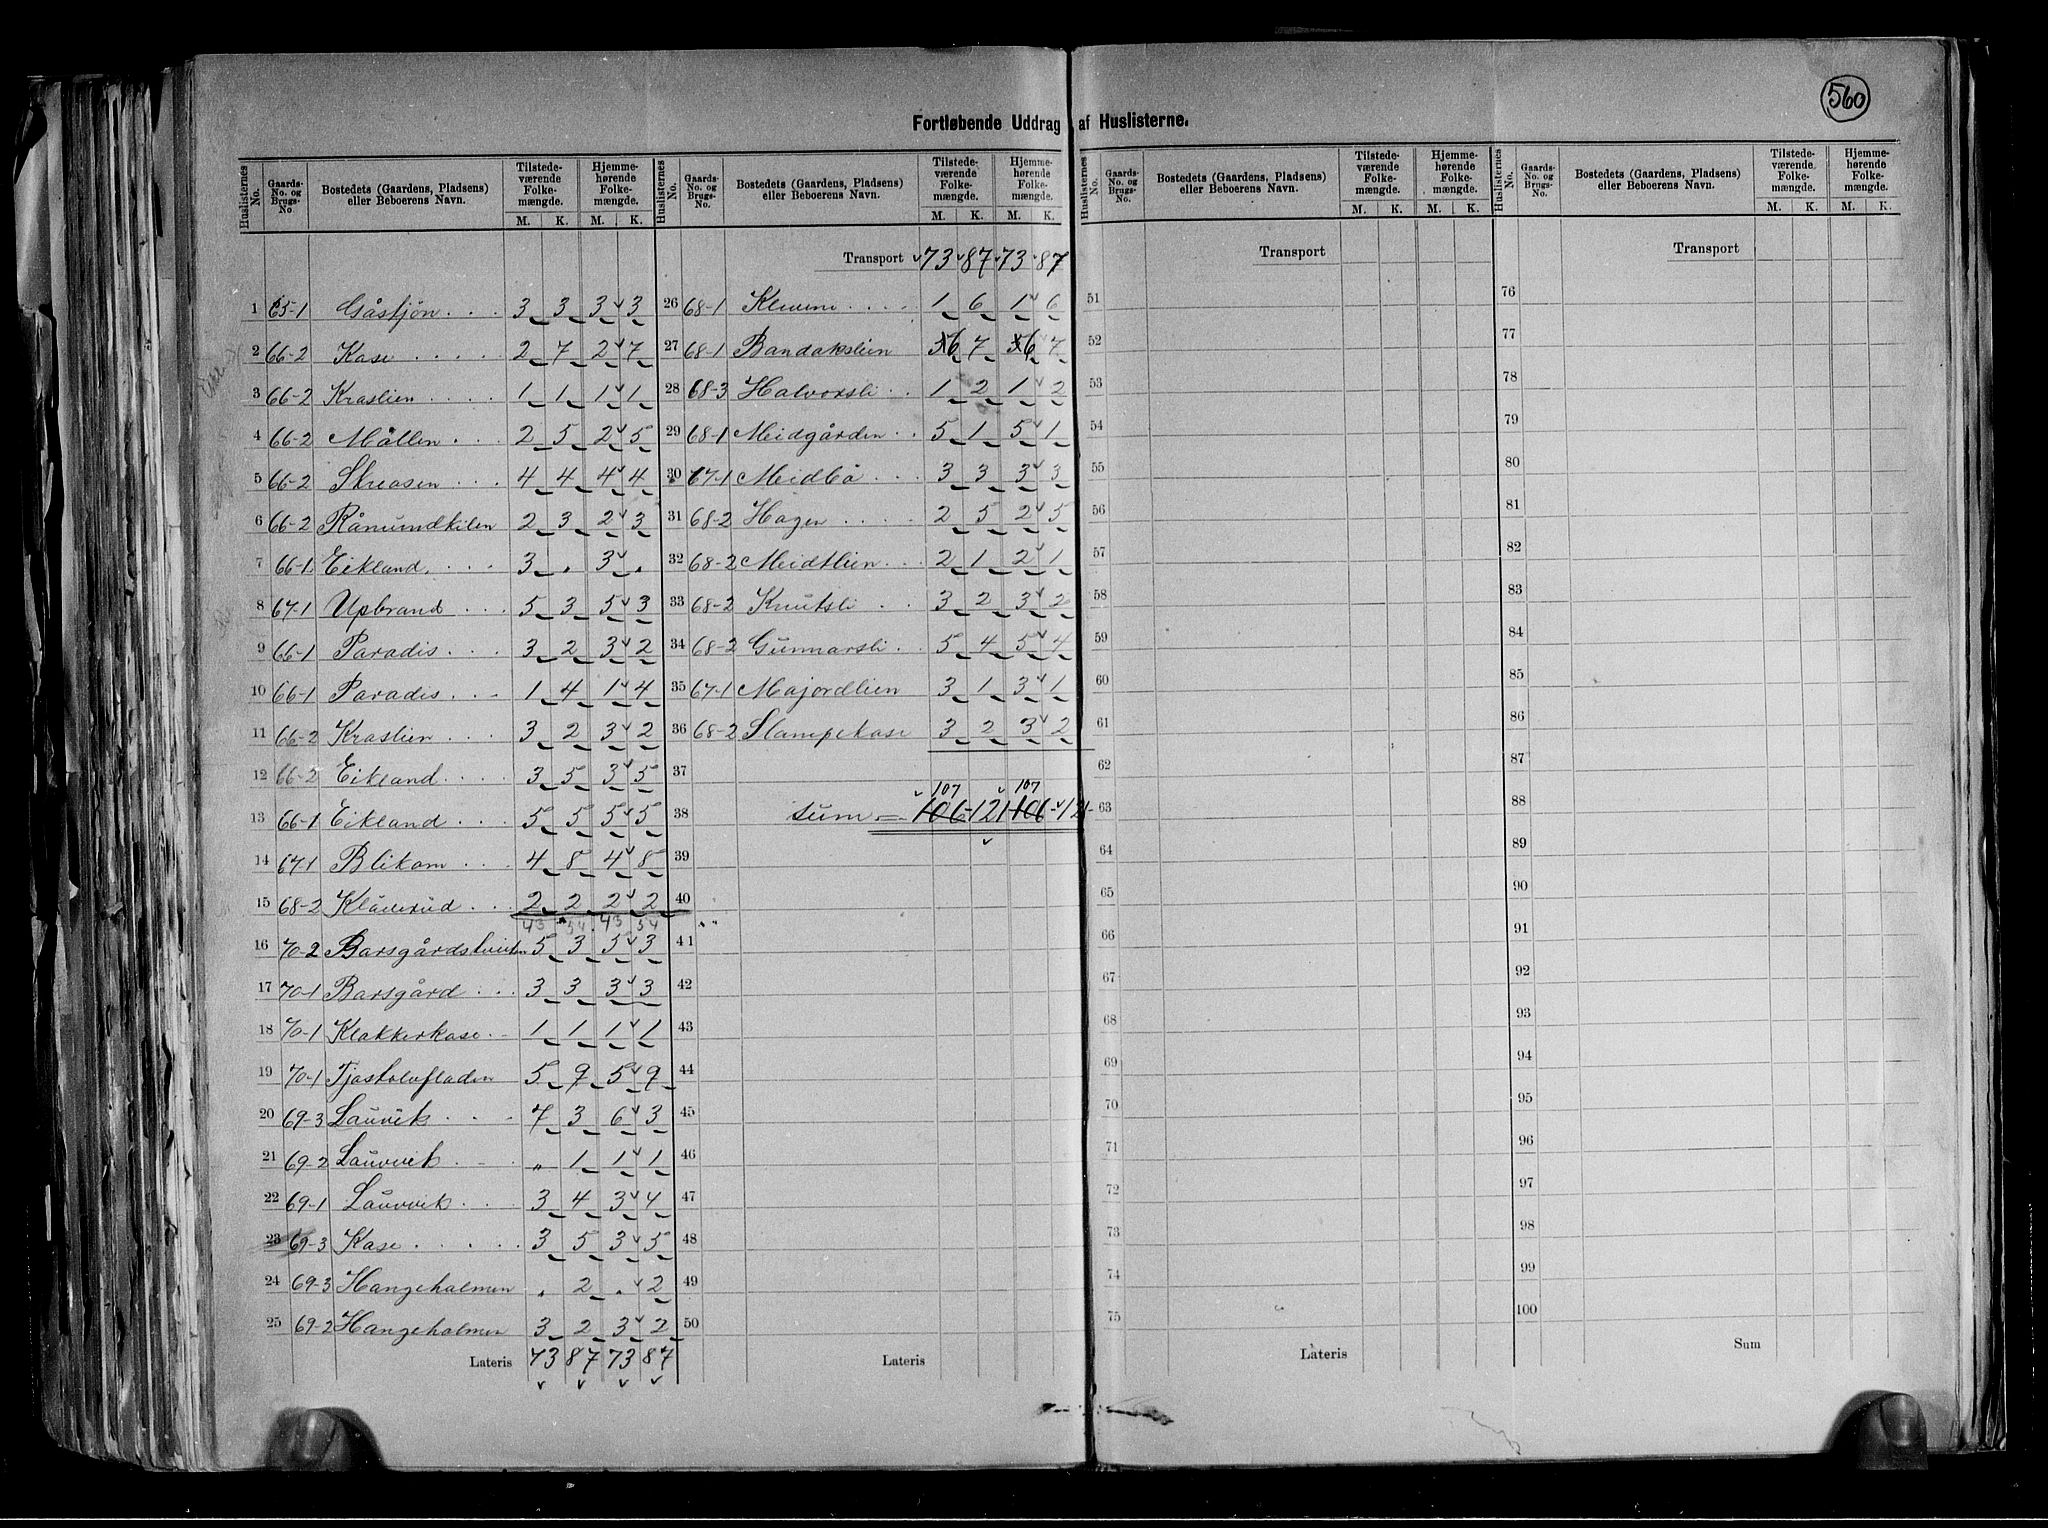 560
Fortløbende Uddrag af Huslisterne.
Huslisternes No. Gaards-No. og Brugs-No. Bostedets (Gaardens, Pladsens) eller Beboerens Navn. Tilstedeværende Folkemængde. M. K. Hjemmehørende Folkemængde. M. K.
1 65-1 Gåstjön 3 3 3 3
2 66-2 Kase 2 7 2 7
3 66-2 Kraslien 1 1 1 1
4 66-2 Möllen 2 5 2 5
5 66-2 Skreosen 4 4 4 4
6 66-2 Råmundkilen 2 3 2 3
7 66-1 Eikland 3 . 3 .
8 67-1 Upbrand 5 3 5 3
9 66-1 Paradis 3 2 3 2
10 66-1 Paradis 1 4 1 4
11 66-2 Kraslien 3 2 3 2
12 66-2 Eikland 3 5 3 5
13 66-1 Eikland 5 5 5 5
14 67-1 Blikom 4 8 4 8
15 68-2 Klåverud 2 2 2 2
43 54 43 54
16 70-2 5 3 5 3
17 70-1 Barsgård 3 3 3 3
18 70-1 Klakkerkase 1 1 1 1
19 70-1 Tjostolvfladen 5 9 5 9
20 69-3 Lauvik 7 3 6 3
21 69-2 Lauvvik „ 1 1 1
22 69-1 Lauvvik 3 4 3 4
23 69-3 Kase 3 5 3 5
24 69-3 Hangeholmen . 2 . 2
25 69-2 Hangeholmen 3 2 3 2
Lateris 73 87 73 87
Huslisternes No. Gaards-No. og Brugs-No. Bostedets (Gaardens, Pladsens) eller Beboerens Navn. Tilstedeværende Folkemængde. M. K. Hjemmehørende Folkemængde. M. K.
Transport 73 87 73 87
26 68-1 Kleveni 1 6 1 6
27 68-1 Bandakslien 6 7 6 7
28 68-3 Halvorsli 1 2 1 2
29 68-1 Meidgården 5 1 5 1
30 67-1 Meidbö 3 3 3 3
31 68-2 Hagen 2 5 2 5
32 68-2 Meidtlien 2 1 2 1
33 68-2 Knutsli 3 2 3 2
34 68-2 Gunnarsli 5 4 5 4
35 67-1 Majordlien 3 1 3 1
36 68-2 Slampekase 3 2 3 2
37
107 107
38 sum = 106 - 121 - 106 - 121
39
40
41
42
43
44
45
46
47
48
49
50
Lateris
Huslisternes No. Gaards-No. og Brugs-No. Bostedets (Gaardens, Pladsens) eller Beboerens Navn. Tilstedeværende Folkemængde. M. K. Hjemmehørende Folkemængde. M. K.
Transport
51
52
53
54
55
56
57
58
59
60
61
62
63
64
65
66
67
68
69
70
71
72
73
74
75
Lateris
Huslisternes No. Gaards-No. og Brugs-No. Bostedets (Gaardens, Pladsens) eller Beboerens Navn. Tilstedeværende Folkemængde. M. K. Hjemmehørende Folkemængde. M. K.
Transport
76
77
78
79
80
81
82
83
84
85
86
87
88
89
90
91
92
93
94
95
96
97
98
99
100
Sum